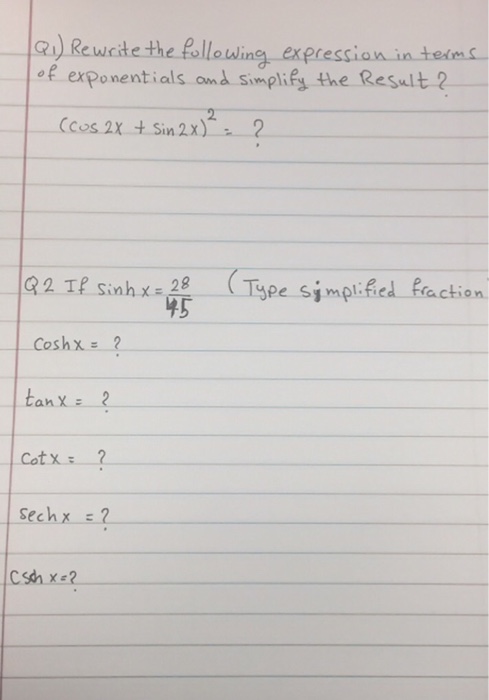 Q1) Rewrite the following expression in terms
of exponentials and simplify the Result?
(cos 2x + sin 2x)² = ?
Q2 If sinh x = 28/45 (Type simplified fraction
cosh x = ?
tan x = ?
cot x = ?
sech x = ?
csch x = ?